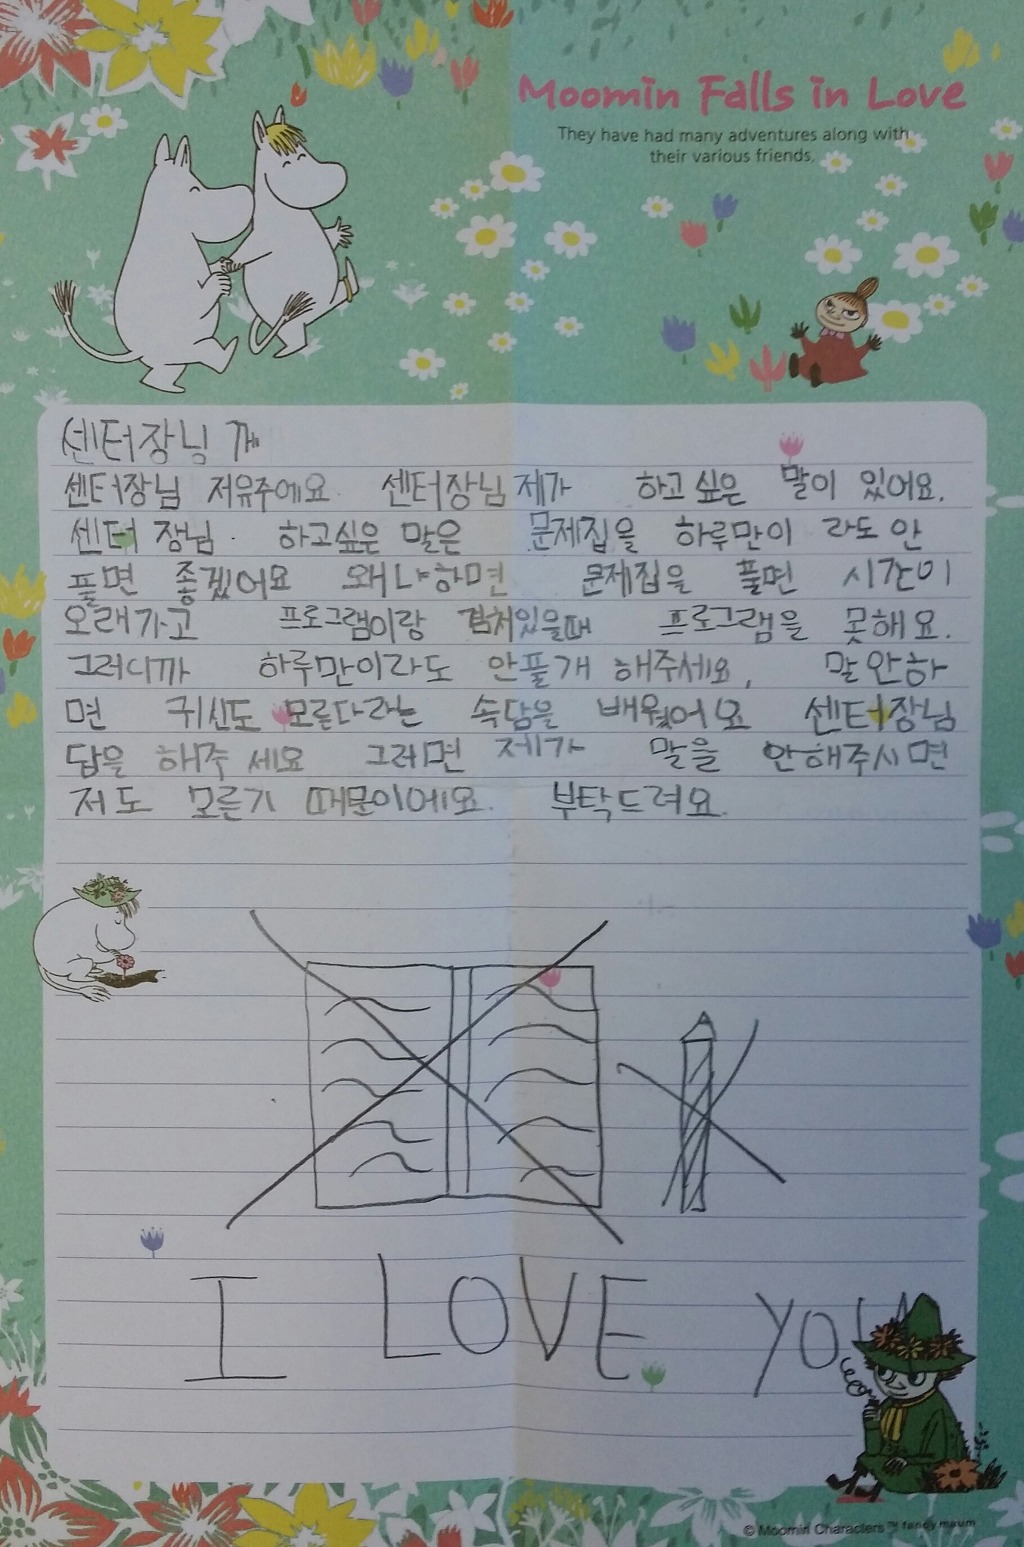 Moomin Falls in Love
They have had many adventures along with
their various friends.
센터장님 께
센터장님 저유주에요. 센터장님 제가 하고 싶은 말이 있어요.
센터 장님. 하고싶은 말은 문제집을 하루만이 라도 안
풀면 좋겠어요 왜냐하면 문제집을 풀면 시간이
오래가고 프로그램이랑 겹처있을때 프로그램을 못해요.
그러니까 하루만이라도 안풀개 해주세요, 말안하
면 귀신도 모른다라는 속담을 배웠어요 센터장님
답을 해주 세요 그러면 제가 말을 안해주시면
저도 모른기 때문이에요. 부탁드려요.
I LOVE YOU
© Moomin Characters™ fancy maum